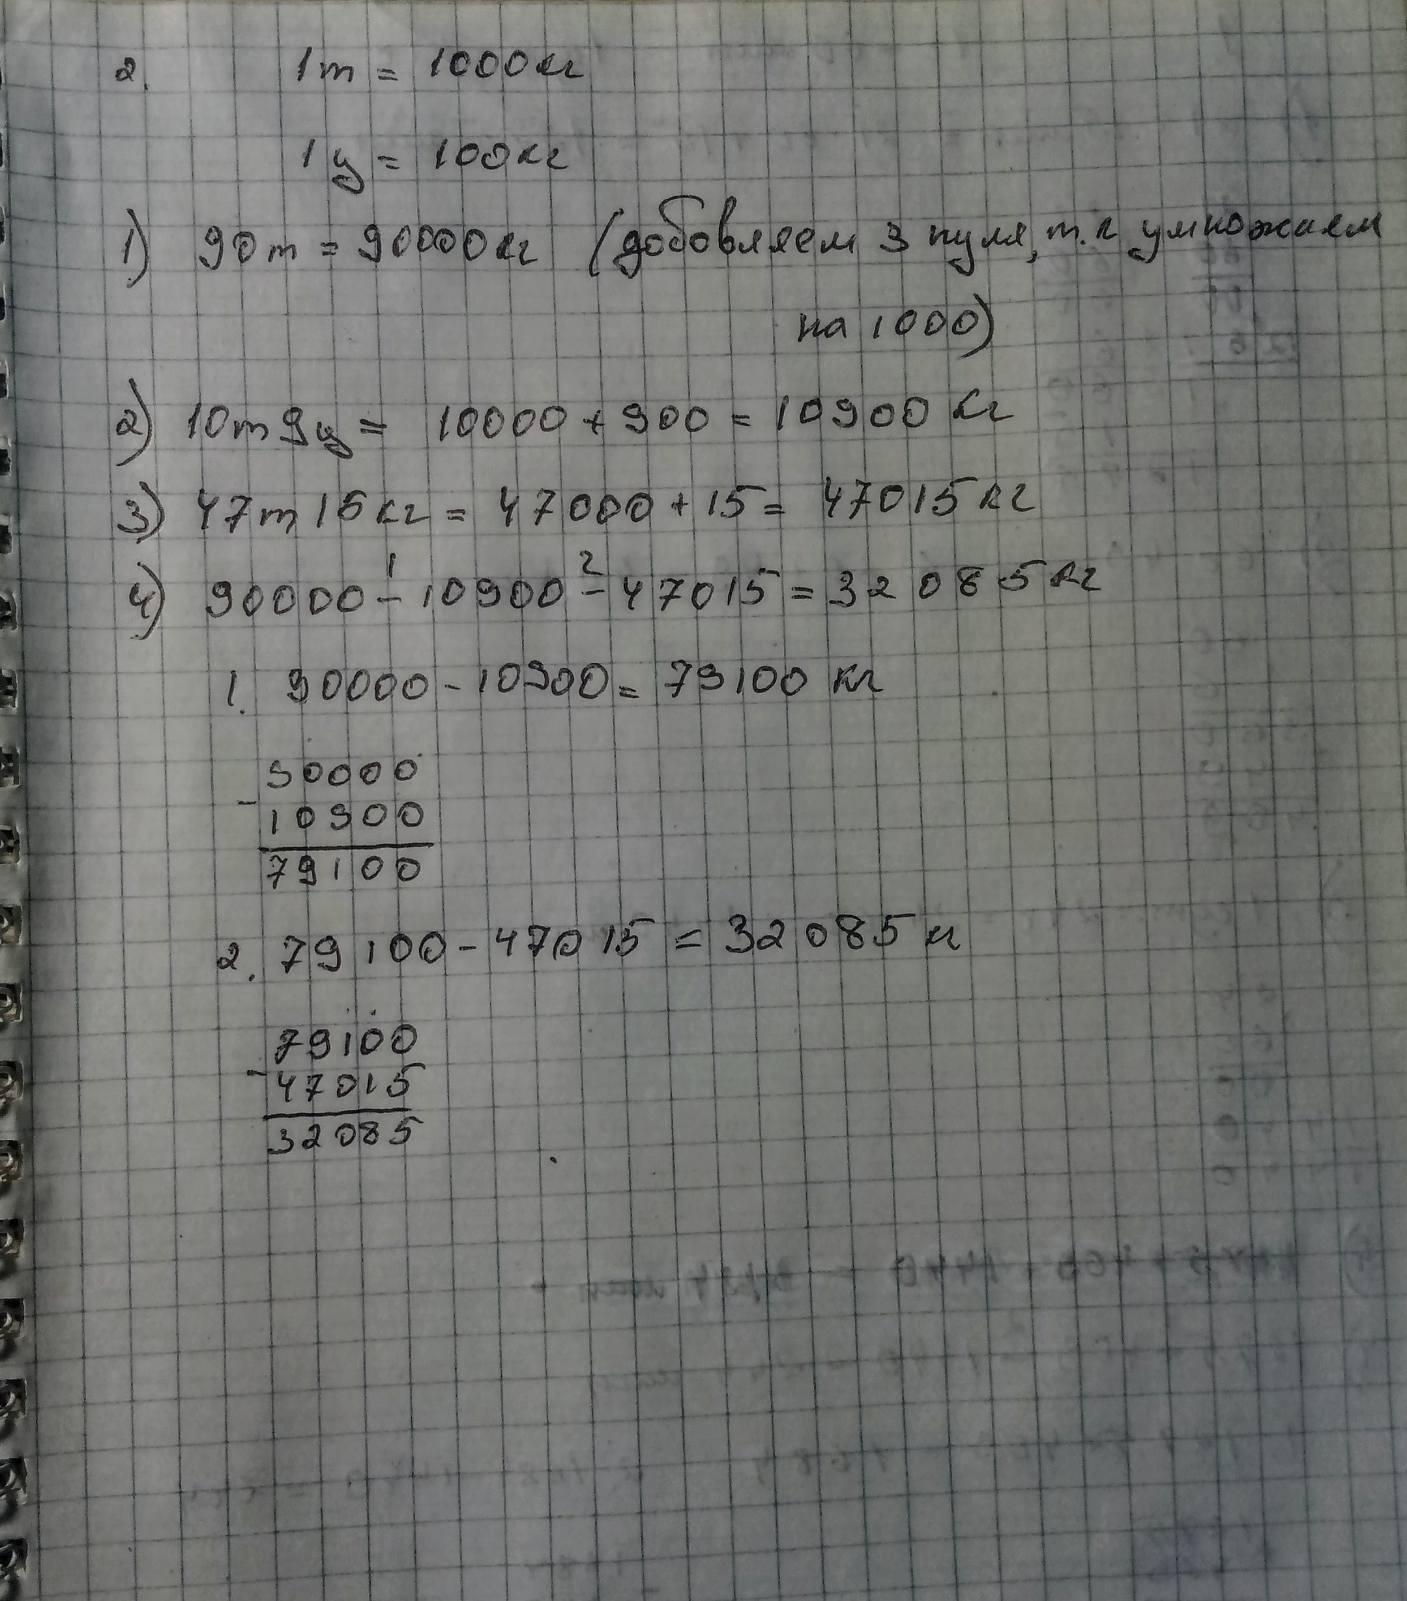 2. 1т = 1000кг
1ц = 100кг
1) 90т = 90000кг (добовляем 3 нуля, т.к умножаем
на 1000)
2) 10т 9ц = 10000 + 900 = 10900 кг
3) 47т 15кг = 47000 + 15 = 47015 кг
1 2
4) 90000 - 10900 - 47015 = 32085 кг
1. 90000 - 10900 = 79100 кг
90000
-
10900
79100
2. 79100 - 47015 = 32085 кг
79100
-
47015
32085